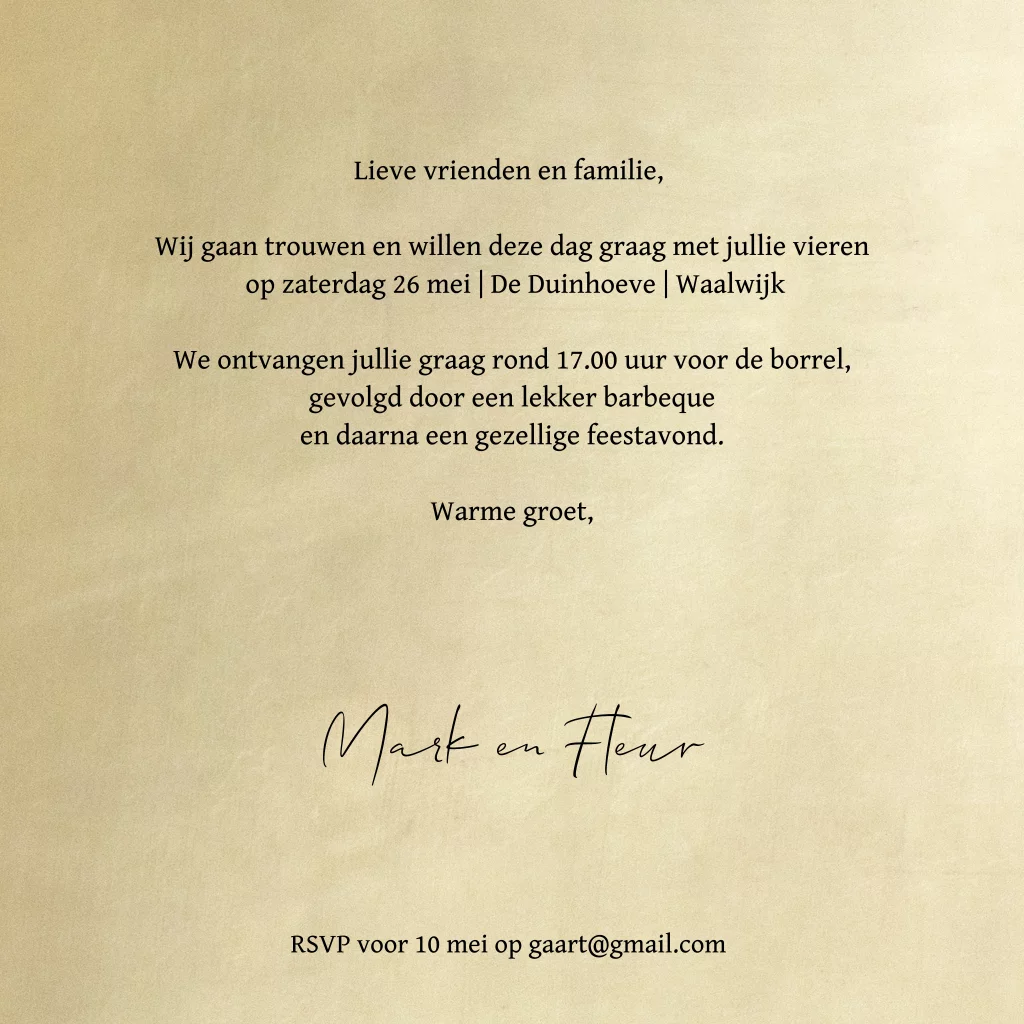 Lieve vrienden en familie,
Wij gaan trouwen en willen deze dag graag met jullie vieren
op zaterdag 26 mei | De Duinhoeve | Waalwijk
We ontvangen jullie graag rond 17.00 uur voor de borrel,
gevolgd door een lekker barbeque
en daarna een gezellige feestavond.
Warme groet,
Mark en Fleur
RSVP voor 10 mei op gaart@gmail.com